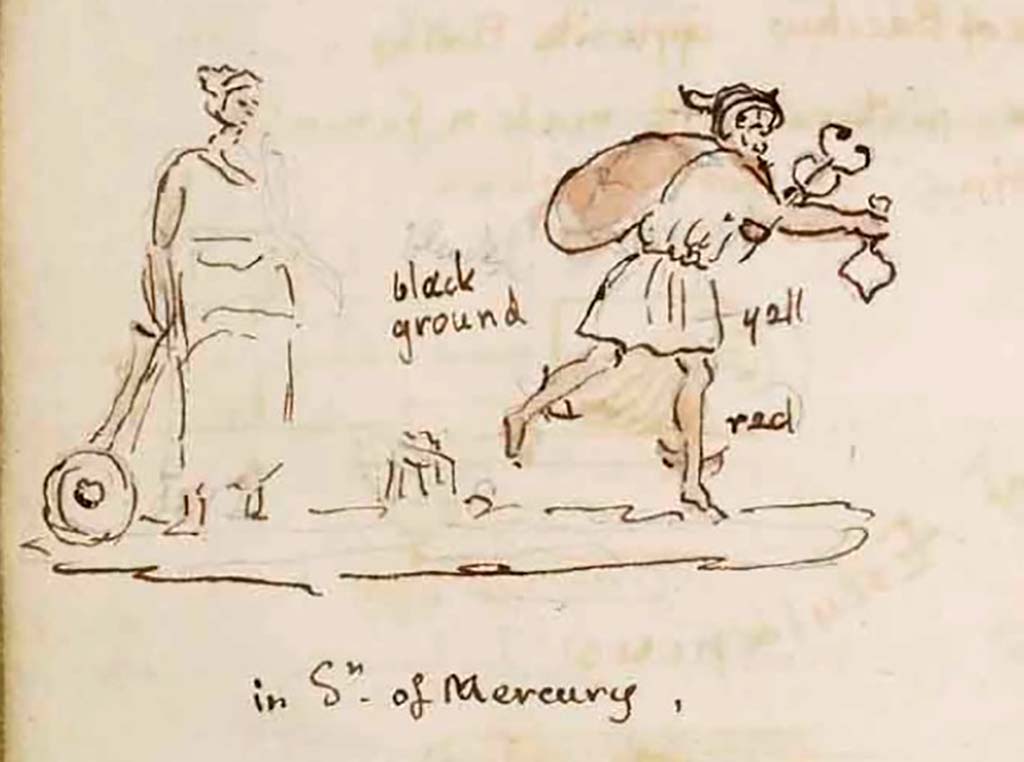 black
ground
yell
red
in Sⁿ. of Mercury,